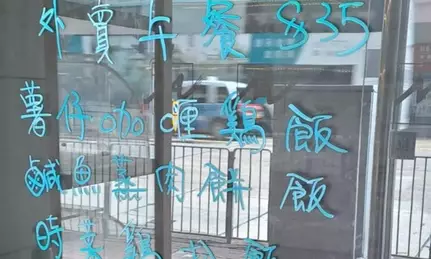 外賣午餐 $35
薯仔咖喱鷄飯
鹹魚蒸肉餅飯
時菜鷄扒飯